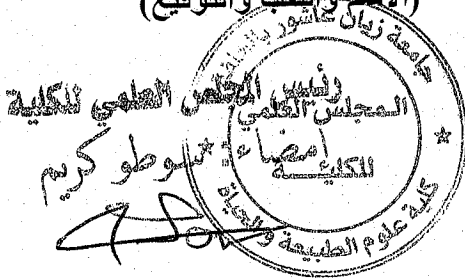 (الاسم واللقب والتوقيع)
جامعة زيان عاشور بالجلفة
رئيس المجلس العلمي للكلية
المجلس العلمي
امضاء: شوطو كريم
للكليـــة
كلية علوم الطبيعة والحياة